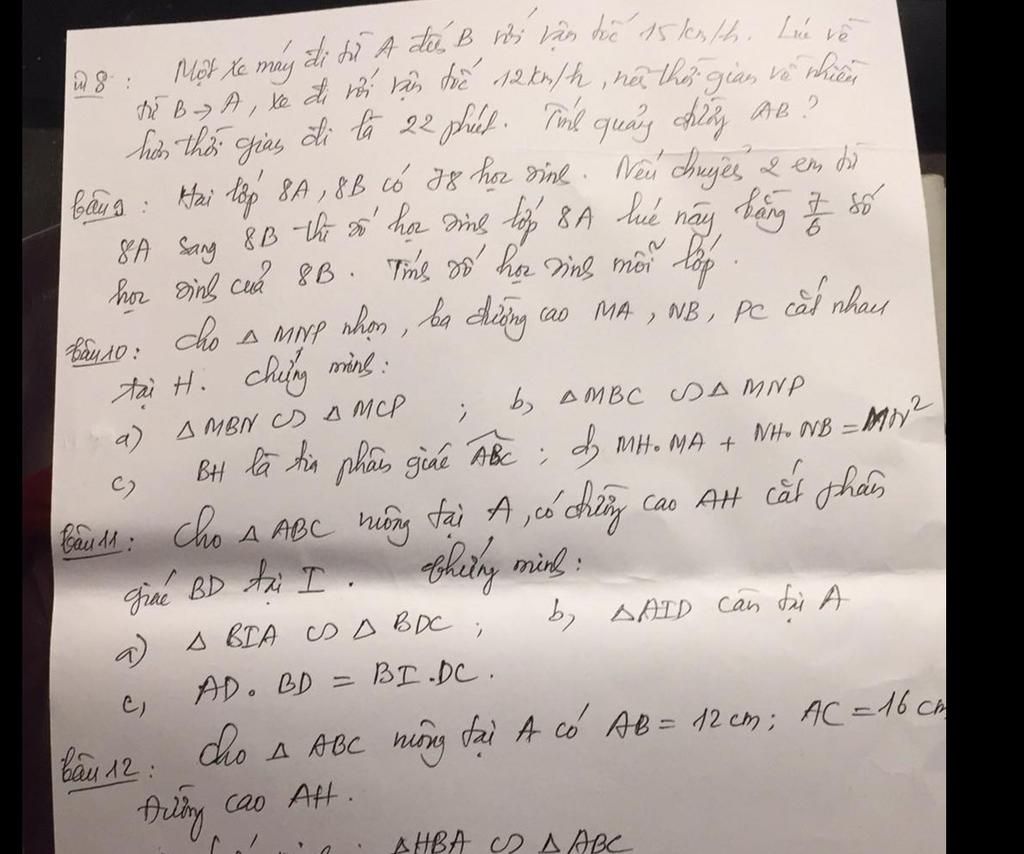 8: Một xe máy đi từ A đến B với vận tốc 15km/h. Lúc về
từ B → A, xe đi với vận tốc 12km/h, nên thời gian về nhiều
hơn thời gian đi là 22 phút. Tính quảng đường AB?
Câu 9: Hai lớp 8A, 8B có 78 học sinh. Nếu chuyển 2 em từ
8A sang 8B thì số học sinh lớp 8A lúc này bằng 7/6 số
học sinh của 8B. Tính số học sinh mỗi lớp.
Câu 10: Cho △ MNP nhọn, ba đường cao MA, NB, PC cắt nhau
tại H. Chứng minh:
a) △ MBN ∽ △ MCP ; b, △MBC ∽ △ MNP
c, BH là tia phân giác ABC; d, MH.MA + NH.NB = MN²
Câu 11: Cho △ ABC vuông tại A, có đường cao AH cắt phân
giác BD tại I. Chứng minh:
a) △ BIA ∽ △ BDC; b, △AID cân tại A
c, AD. BD = BI.DC.
Câu 12: Cho △ ABC vuông tại A có AB = 12cm; AC = 16 cm
Đường cao AH.
△HBA ∽ △ABC